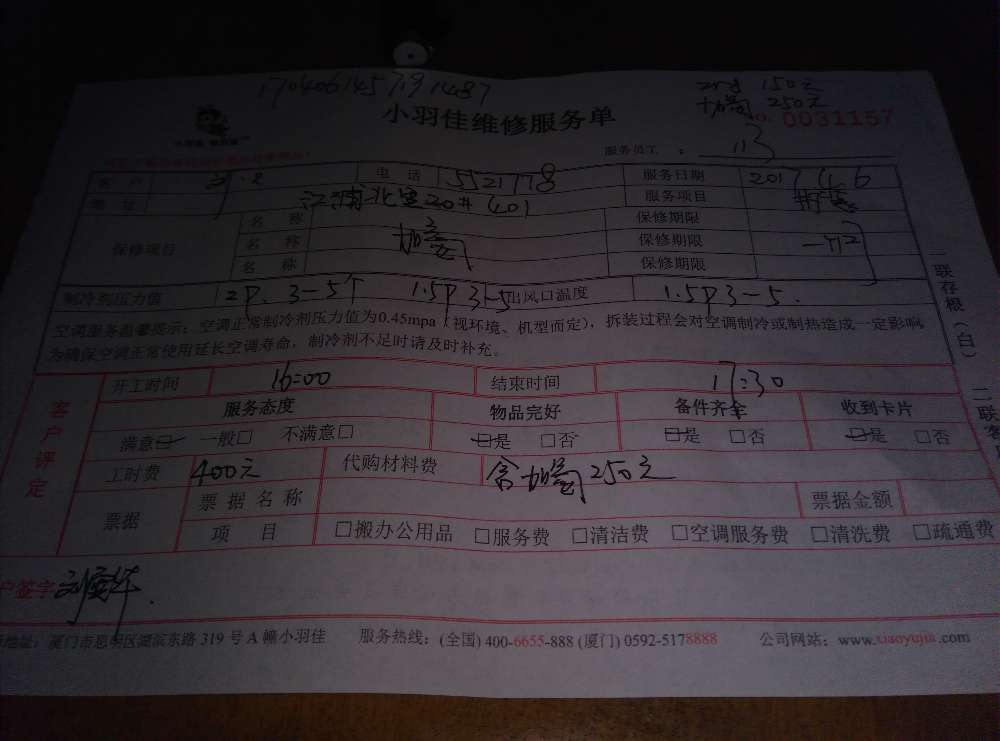 170406145791487
150元
加氟 250元
小羽佳维修服务单
No. 0031157
服务员工 : 113
客户 电话 5521778 服务日期 2017 4 6
地址 20# 401 服务项目
保修项目 名称 加氟 保修期限
名称 保修期限
名称 保修期限
制冷剂压力值 2P. 3-5个 1.5P 3-5 出风口温度 1.5P 3-5.
空调服务温馨提示:空调正常制冷剂压力值为0.45mpa(视环境、机型而定),拆装过程会对空调制冷或制热造成一定影响
为确保空调正常使用延长空调寿命,制冷剂不足时请及时补充。
一联存根(白) 二联客
客户评定
开工时间 16:00 结束时间 17:30
服务态度 物品完好 备件齐全 收到卡片
满意□ 一般□ 不满意□ □是 □否 □是 □否 □是 □否
工时费 400元 代购材料费 含加氟250元
票据 票据名称 票据金额
项目 □搬办公用品 □服务费 □清洁费 □空调服务费 □清洗费 □疏通费
户签字
地址:厦门市思明区湖滨东路 319 号 A 幢小羽佳 服务热线:(全国) 400-6655-888 (厦门) 0592-5178888 公司网站:www.xiaoyujia.com